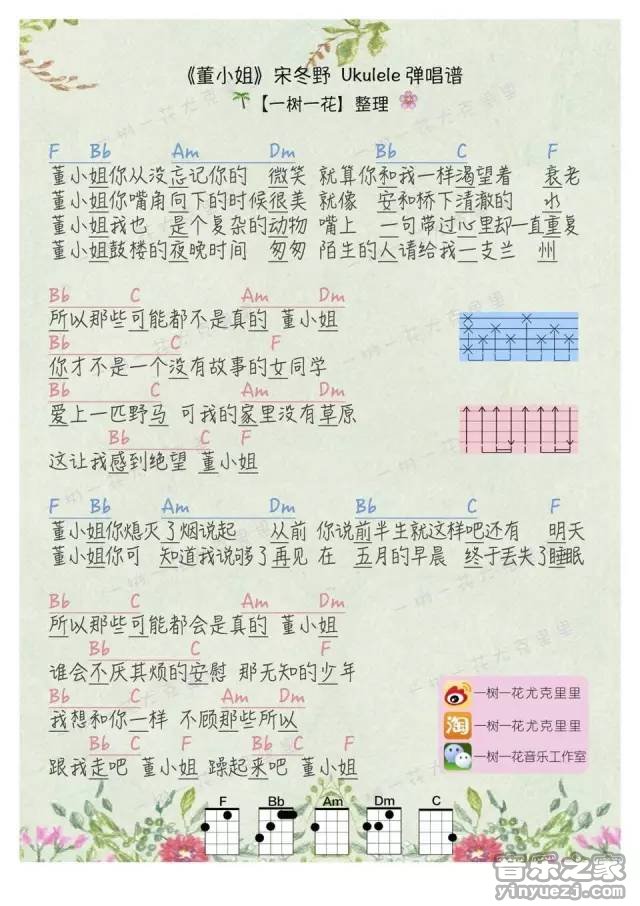 《董小姐》宋冬野 Ukulele 弹唱谱
【一树一花】整理
F Bb Am Dm Bb C F
董小姐你从没忘记你的 微笑 就算你和我一样渴望着 衰老
董小姐你嘴角向下的时候很美 就像 安和桥下清澈的 水
董小姐我也 是个复杂的动物 嘴上 一句带过心里却一直重复
董小姐鼓楼的夜晚时间 匆匆 陌生的人请给我一支兰 州
Bb C Am Dm
所以那些可能都不是真的 董小姐
Bb C F
你才不是一个没有故事的女同学
Bb C Am Dm
爱上一匹野马 可我的家里没有草原
Bb C F
这让我感到绝望 董小姐
F Bb Am Dm Bb C F
董小姐你熄灭了烟说起 从前 你说前半生就这样吧还有 明天
董小姐你可 知道我说够了再见 在 五月的早晨 终于丢失了睡眠
Bb C Am Dm
所以那些可能都会是真的 董小姐
Bb C F
谁会不厌其烦的安慰 那无知的少年
Bb C Am Dm
我想和你一样 不顾那些所以
Bb C F Bb C F
跟我走吧 董小姐 躁起来吧 董小姐
一树一花尤克里里
淘 一树一花尤克里里
一树一花音乐工作室
F Bb Am Dm C
音乐之家
yinyuezj.com